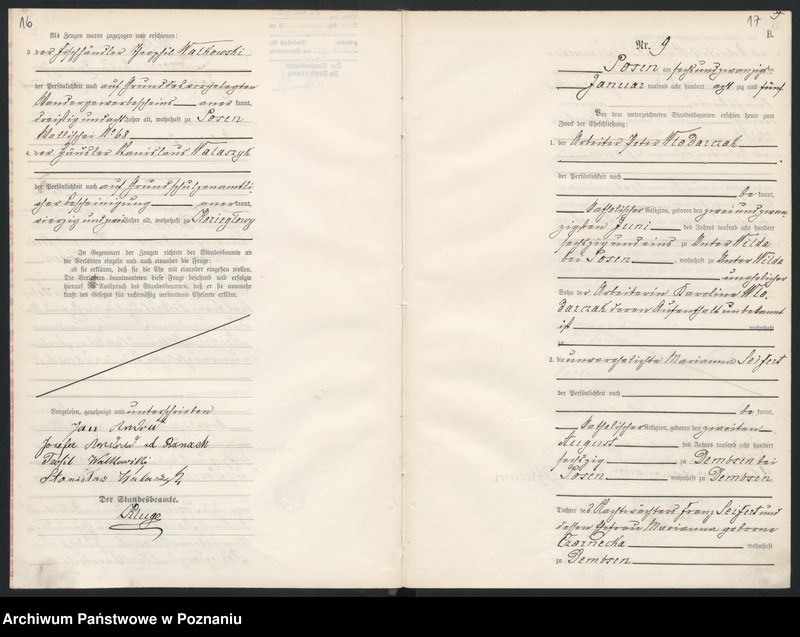 16
Als Zeugen waren zugezogen und erschienen:
3. der Fischhändler Theophil Walkowski
der Persönlichkeit nach auf Grund des vorgelegten
Wandergewerbescheins anerkannt,
dreißig und acht Jahre alt, wohnhaft zu Posen
Wallischei No 68
4. der Häusler Stanislaus Wataszyk
der Persönlichkeit nach auf Grund schulzenamtli-
cher Bescheinigung anerkannt,
vierzig und zwei Jahre alt, wohnhaft zu Kozieglowy
In Gegenwart der Zeugen richtete der Standesbeamte an
die Verlobten einzeln und nach einander die Frage:
ob sie erklären, daß sie die Ehe mit einander eingehen wollen.
Die Verlobten beantworteten diese Frage bejahend und erfolgte
hierauf der Ausspruch des Standesbeamten, daß er sie nunmehr
kraft des Gesetzes für rechtmäßig verbundene Eheleute erkläre.
Vorgelesen, genehmigt und unterschrieben
Jan
Józefa
Teofil Walkowski
Stanisław
Der Standesbeamte.
Kluge
17
9
B.
Nr. 9
Posen am sechsundzwanzig-
Januar tausend acht hundert acht zig und fünf
Vor dem unterzeichneten Standesbeamten erschien heute zum
Zweck der Eheschließung:
1. der Arbeiter Peter Wlodarczak
der Persönlichkeit nach
be kannt,
katholischer Religion, geboren den zweiundzwan-
zigsten Juni des Jahres tausend acht hundert
sechszig und eins zu Unter Wilda
bei Posen, wohnhaft zu Unter Wilda
unehelicher
Sohn der Arbeiterin Karolina Wlo-
darczak deren Aufenthalt unbekannt
ist wohnhaft
zu
2. die unverehelichte Marianna Seifert
der Persönlichkeit nach
be kannt,
katholischer Religion, geboren den zweiten
August des Jahres tausend acht hundert
sechszig zu Dembsen bei
Posen, wohnhaft zu Dembsen
Tochter des Nachtwächters Franz Seifert und
dessen Ehefrau Marianna geborne
Czarnecka wohnhaft
zu Dembsen
Archiwum Państwowe w Poznaniu